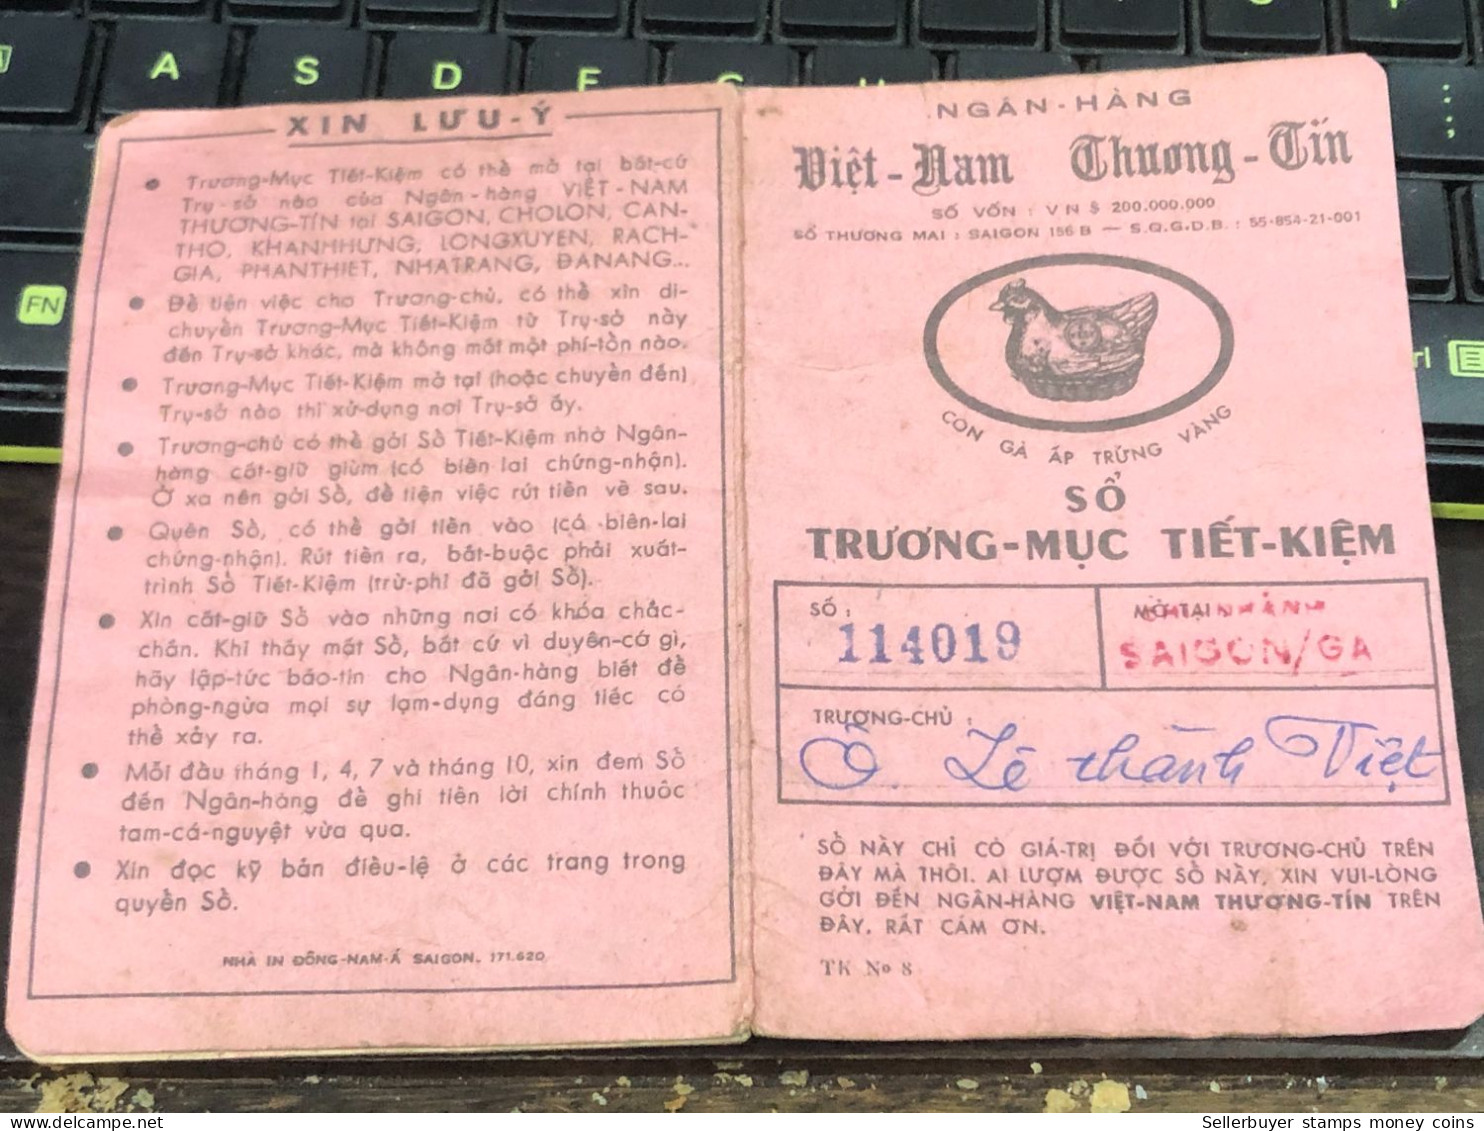 A S D F
FN
XIN LƯU-Ý
• Trương-Mục Tiết-Kiệm có thể mở tại bất-cứ
Trụ-sở nào của Ngân-hàng VIỆT-NAM
THƯƠNG-TÍN tại SAIGON, CHOLON, CAN-
THO, KHANHHƯNG, LONGXUYEN, RACH-
GIA, PHANTHIET, NHATRANG, ĐANANG...
• Để tiện việc cho Trương-chủ, có thể xin di-
chuyển Trương-Mục Tiết-Kiệm từ Trụ-sở này
đến Trụ-sở khác, mà không mất một phí-tổn nào.
• Trương-Mục Tiết-Kiệm mở tại (hoặc chuyển đến)
Trụ-sở nào thì xử-dụng nơi Trụ-sở ấy.
• Trương-chủ có thể gởi Sổ Tiết-Kiệm nhờ Ngân-
hàng cất-giữ giùm (có biên-lai chứng-nhận).
Ở xa nên gởi Sổ, để tiện việc rút tiền về sau.
• Quên Sổ, có thể gởi tiền vào (có biên-lai
chứng-nhận). Rút tiền ra, bắt-buộc phải xuất-
trình Sổ Tiết-Kiệm (trừ-phi đã gởi Sổ).
• Xin cất-giữ Sổ vào những nơi có khóa chắc-
chắn. Khi thấy mất Sổ, bất cứ vì duyên-cớ gì,
hãy lập-tức báo-tin cho Ngân-hàng biết để
phòng-ngừa mọi sự lạm-dụng đáng tiếc có
thể xảy ra.
• Mỗi đầu tháng 1, 4, 7 và tháng 10, xin đem Sổ
đến Ngân-hàng để ghi tiền lời chính thuộc
tam-cá-nguyệt vừa qua.
• Xin đọc kỹ bản điều-lệ ở các trang trong
quyển Sổ.
NHÀ IN ĐÔNG-NAM-Á SAIGON. 171.620
NGÂN-HÀNG
Việt-Nam Thương-Tín
SỐ VỐN : VN $ 200.000.000
SỐ THƯƠNG MẠI : SAIGON 156 B — S.Q.G.D.B. : 55-854-21-001
CON GÀ ẤP TRỨNG VÀNG
SỔ
TRƯƠNG-MỤC TIẾT-KIỆM
SỐ :
114019
MỞ TẠI
CHI NHÁNH
SAIGON/GA
TRƯƠNG-CHỦ :
Ô. Lê thành Việt
SỔ NÀY CHỈ CÓ GIÁ-TRỊ ĐỐI VỚI TRƯƠNG-CHỦ TRÊN
ĐÂY MÀ THÔI. AI LƯỢM ĐƯỢC SỔ NÀY, XIN VUI-LÒNG
GỞI ĐẾN NGÂN-HÀNG VIỆT-NAM THƯƠNG-TÍN TRÊN
ĐÂY. RẤT CÁM ƠN.
TK No 8
Sellerbuyer stamps money coins